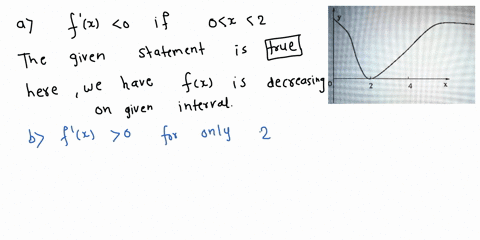 a) f'(x) <0 if 0<x<2
The given statement is true
here, we have f(x) is decreasing
on given interval.
b) f'(x) >0 for only 2
y
0
2
4
x